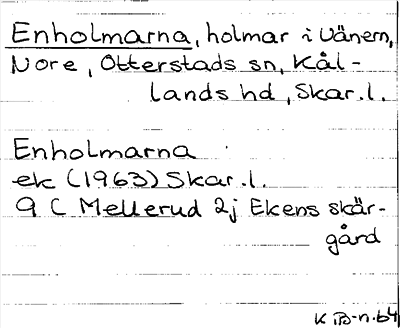 Enholmarna, holmar i Vänern,
Nore, Otterstads sn, Kål-
lands hd, Skar.l.
Enholmarna
ek (1963) Skar.l.
9 C Mellerud 2j Ekens skär-
gård